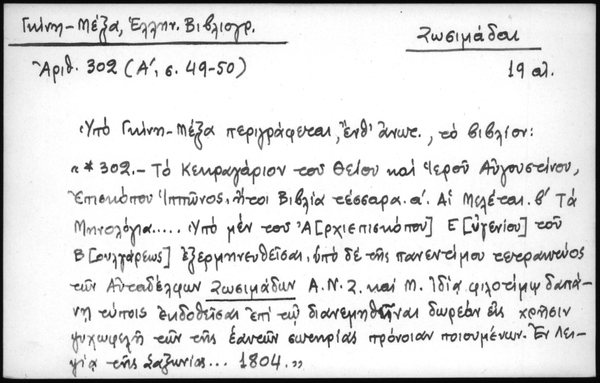 Γκίνη-Μέξα, Ἑλλην. Βιβλιογρ.
Ζωσιμάδαι
Ἀριθ. 302 (Α', σ. 49-50)
19 αἰ.
Ὑπὸ Γκίνη-Μέξα περιγράφεται, ἔνθ' ἀνωτ., τὸ βιβλίον:
«*302.- Τὸ Κεκραγάριον τοῦ Θείου καὶ Ἱεροῦ Αὐγουστίνου,
Ἐπισκόπου Ἱππῶνος, ἤτοι Βιβλία τέσσαρα. α'. Αἱ Μελέται. β' Τὰ
Μηνολόγια..... Ὑπὸ μὲν τοῦ Ἀ[ρχιεπισκόπου] Ε[ὐγενίου] τοῦ
Β[ουλγάρεως] ἐξερμηνευθεῖσαι, ὑπὸ δὲ τῆς πανεντίμου τετρακτύος
τῶν Αὐταδέλφων Ζωσιμάδων Α. Ν. Ζ. καὶ Μ. Ἰδίᾳ φιλοτίμῳ δαπά-
νῃ τύποις ἐκδοθεῖσαι ἐπὶ τῷ διανεμηθῆναι δωρεὰν εἰς χρῆσιν
ψυχωφελῆ τῶν τῆς ἑαυτῶν σωτηρίας πρόνοιαν ποιουμένων. Ἐν Λει-
ψίᾳ τῆς Σαξωνίας... 1804.»